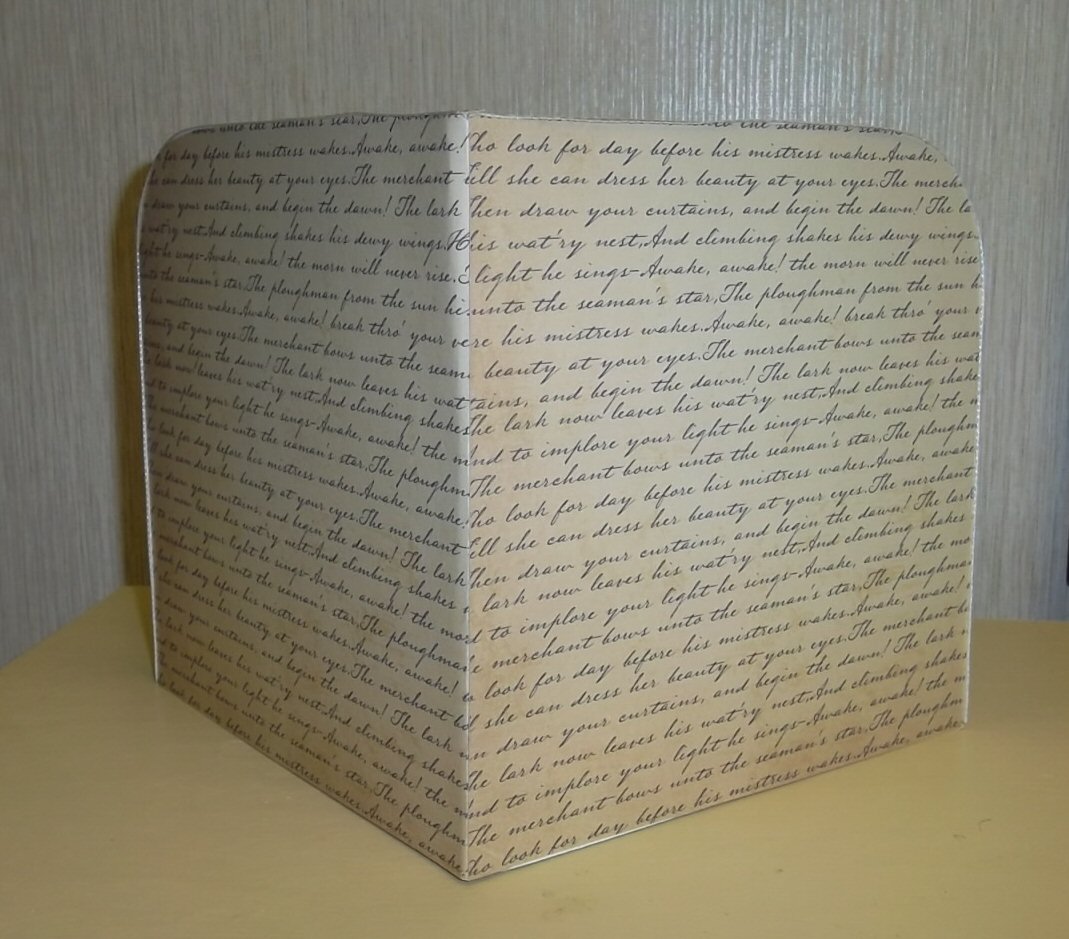 bows unto the seaman's star,The plough
for day before his mistress wakes.Awake, awake!
can dress her beauty at your eyes.The merchant
draw your curtains, and begin the dawn! The lark
wat'ry nest,And climbing shakes his dewy wings.
light he sings-Awake, awake! the morn will never rise.
unto the seaman's star,The ploughman from the sun
his mistress wakes.Awake, awake! break thro' your
beauty at your eyes.The merchant bows unto the seam
and begin the dawn! The lark now leaves his wat
lark now leaves his wat'ry nest,And climbing shakes
to implore your light he sings-Awake, awake! the
merchant bows unto the seaman's star,The ploughm
look for day before his mistress wakes.Awake, awake!
she can dress her beauty at your eyes.The merchant
draw your curtains, and begin the dawn! The lark
lark now leaves his wat'ry nest,And climbing shakes
to implore your light he sings-Awake, awake! the
merchant bows unto the seaman's star,The ploughman
look for day before his mistress wakes.Awake, awake!
she can dress her beauty at your eyes.The merchant
draw your curtains, and begin the dawn! The lark
lark now leaves his wat'ry nest,And climbing shakes
to implore your light he sings-Awake, awake! the
merchant bows unto the seaman's star,The ploughm
look for day before his mistress wakes.Awake, awake
unto the seaman's star,
Who look for day before his mistress wakes.Awake,
Till she can dress her beauty at your eyes.The merch
Then draw your curtains, and begin the dawn! The la
His wat'ry nest,And climbing shakes his dewy wings.
light he sings-Awake, awake! the morn will never rise
unto the seaman's star,The ploughman from the sun h
his mistress wakes.Awake, awake! break thro' your
beauty at your eyes.The merchant bows unto the sea
tains, and begin the dawn! The lark now leaves his wat
The lark now leaves his wat'ry nest,And climbing shake
nd to implore your light he sings-Awake, awake! the
The merchant bows unto the seaman's star,The ploughm
Who look for day before his mistress wakes.Awake, awake
Till she can dress her beauty at your eyes.The merchant
Then draw your curtains, and begin the dawn! The lark
lark now leaves his wat'ry nest,And climbing shakes
to implore your light he sings-Awake, awake! the mo
merchant bows unto the seaman's star,The ploughma
look for day before his mistress wakes.Awake, awake!
she can dress her beauty at your eyes.The merchant b
draw your curtains, and begin the dawn! The lark
The lark now leaves his wat'ry nest,And climbing shakes
nd to implore your light he sings-Awake, awake! the m
The merchant bows unto the seaman's star,The ploughm
Who look for day before his mistress wakes.Awake, awake